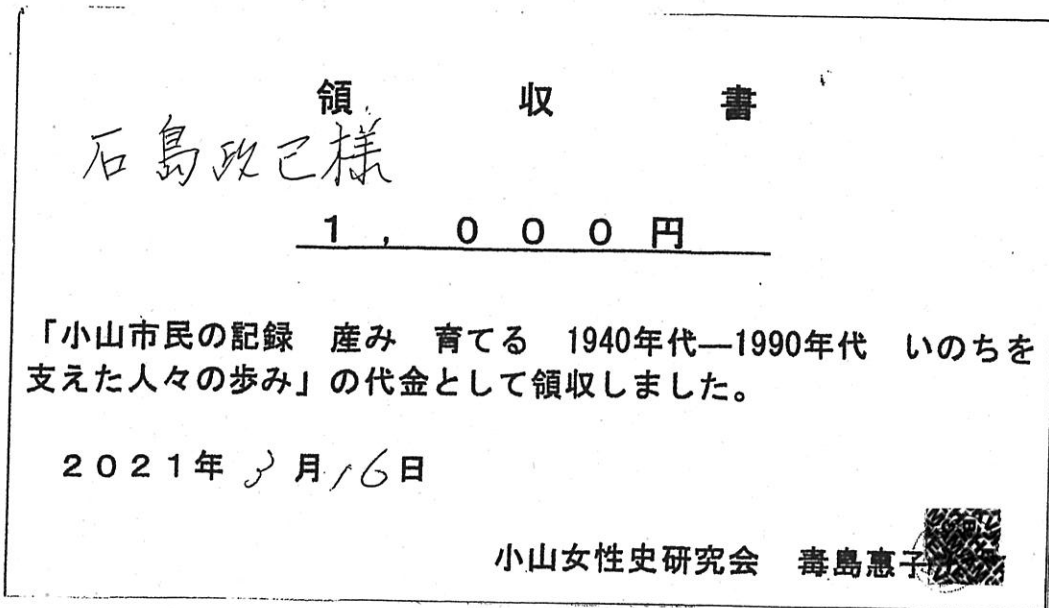 領収書
石島政己様
1,000円
「小山市民の記録 産み 育てる 1940年代―1990年代 いのちを
支えた人々の歩み」の代金として領収しました。
2021年3月16日
小山女性史研究会 毒島惠子